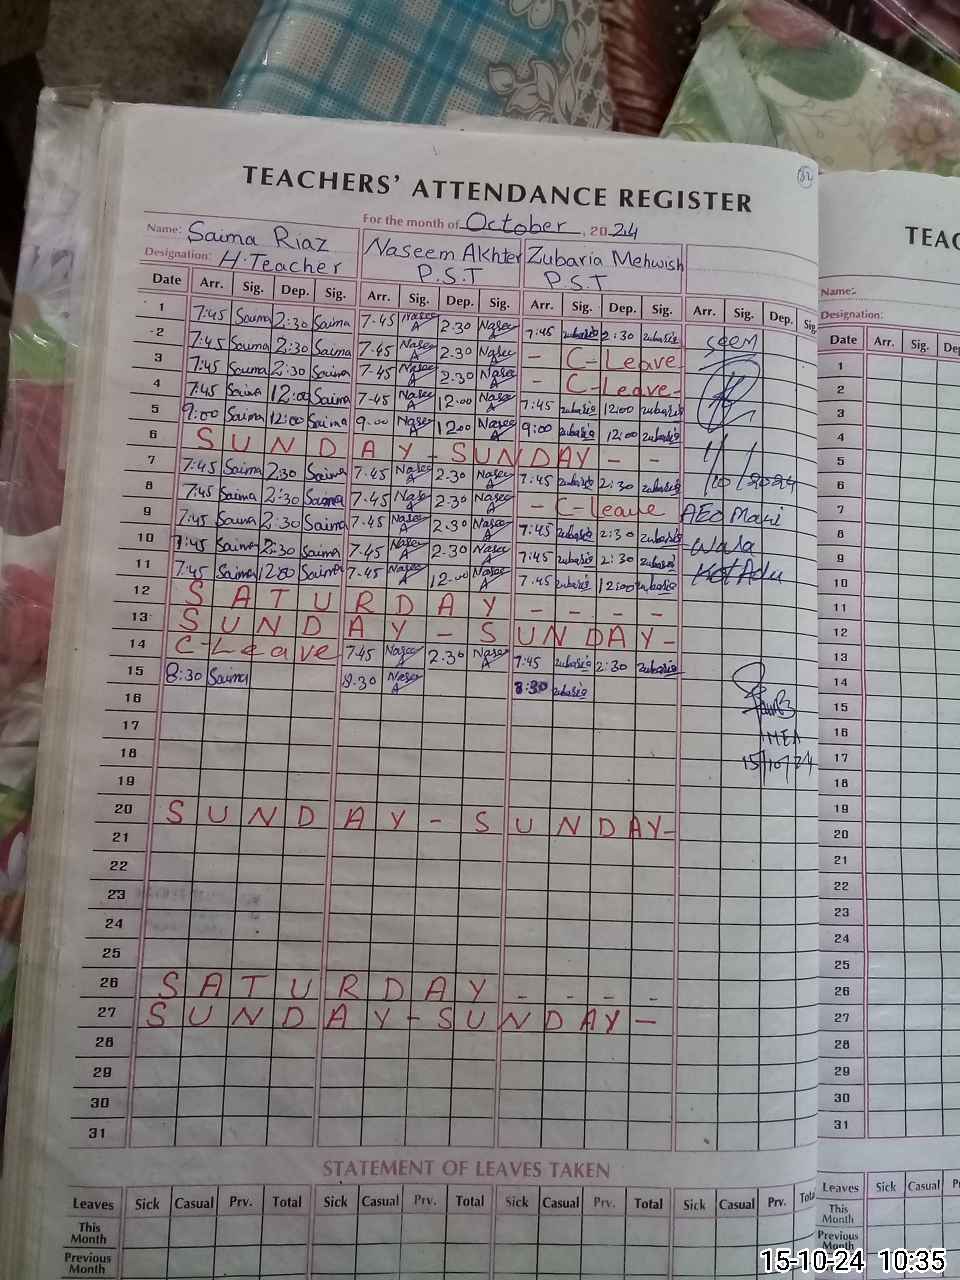 TEACHERS' ATTENDANCE REGISTER
For the month of October, 2024
Name: Saima Riaz Naseem Akhter Zubaria Mehwish
Designation: H.Teacher P.S.T P.S.T
Date Arr. Sig. Dep. Sig. Arr. Sig. Dep. Sig. Arr. Sig. Dep. Sig. Arr. Sig. Dep. Sig.
1 7:45 Saima 2:30 Saima 7.45 Naseem A 2.30 Naseem 7:45 zubaria 2:30 zubaria seen
2 7:45 Saima 2:30 Saima 7.45 Naseem A 2.30 Naseem - C-Leave
3 7:45 Saima 2:30 Saima 7.45 Naseem A 2.30 Naseem - C-Leave-
4 7:45 Saima 12:00 Saima 7.45 Naseem A 12.00 Naseem 7:45 zubaria 12:00 zubaria
5 9:00 Saima 12:00 Saima 9.00 Naseem A 12.00 Naseem 9:00 zubaria 12:00 zubaria
6 SUNDAY - SUNDAY - -
7 7:45 Saima 2:30 Saima 7.45 Naseem A 2.30 Naseem 7:45 zubaria 2:30 zubaria /10/2024
8 7:45 Saima 2:30 Saima 7.45 Naseem A 2.30 Naseem - C-Leave AEO
9 7:45 Saima 2:30 Saima 7.45 Naseem A 2.30 Naseem A 7:45 zubaria 2:30 zubaria
10 7:45 Saima 2:30 Saima 7.45 Naseem A 2.30 Naseem A 7:45 zubaria 2:30 zubaria Kot Adu
11 7:45 Saima 12:00 Saima 7.45 Naseem A 12.00 Naseem A 7.45 zubaria 12:00 zubaria
12 SATURDAY - - - -
13 SUNDAY - SUNDAY -
14 C-Leave 7.45 Naseem A 2.30 Naseem A 7:45 zubaria 2:30 zubaria
15 8:30 Saima 8.30 Naseem A 8:30 zubaria
16
17 15/10/24
18
19
20 SUNDAY - SUNDAY-
21
22
23
24
25
26 SATURDAY - - - -
27 SUNDAY - SUNDAY -
28
29
30
31
STATEMENT OF LEAVES TAKEN
Leaves Sick Casual Prv. Total Sick Casual Prv. Total Sick Casual Prv. Total Sick Casual Prv. Total
This Month
Previous Month
32
TEAC
Name:-
Designation:
Date Arr. Sig. Dep
1
2
3
4
5
6
7
8
9
10
11
12
13
14
15
16
17
18
19
20
21
22
23
24
25
26
27
28
29
30
31
Leaves Sick Casual P
This Month
Previous Month
15-10-24 10:35